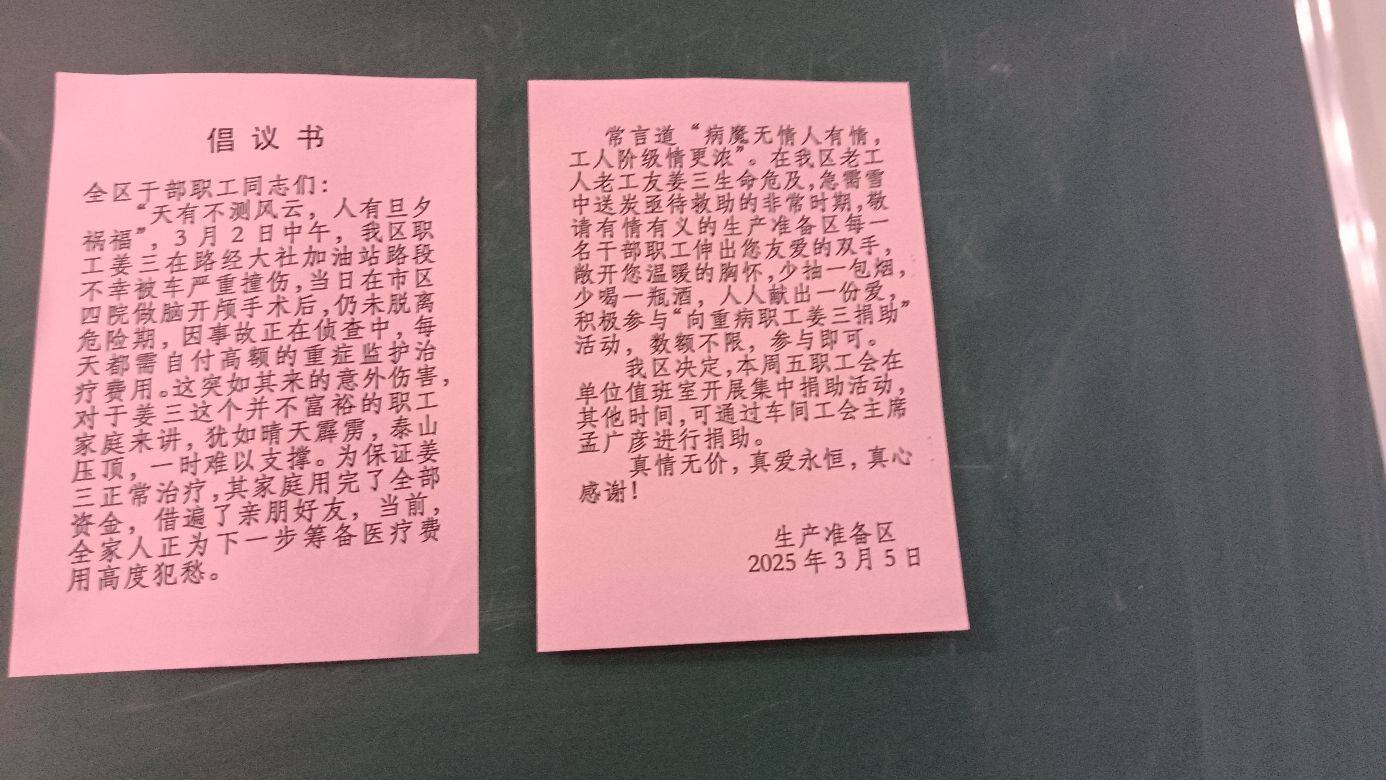 倡议书
全区干部职工同志们：
“天有不测风云，人有旦夕
祸福”，3月2日中午，我区职
工姜三在路经大社加油站路段
不幸被车严重撞伤，当日在市区
四院做脑开颅手术后，仍未脱离
危险期，因事故正在侦查中，每
天都需自付高额的重症监护治
疗费用。这突如其来的意外伤害，
对于姜三这个并不富裕的职工
家庭来讲，犹如晴天霹雳，泰山
压顶，一时难以支撑。为保证姜
三正常治疗，其家庭用完了全部
资金，借遍了亲朋好友，当前，
全家人正为下一步筹备医疗费
用高度犯愁。
常言道“病魔无情人有情，
工人阶级情更浓”。在我区老工
人老工友姜三生命危及，急需雪
中送炭亟待救助的非常时期，敬
请有情有义的生产准备区每一
名干部职工伸出您友爱的双手，
敞开您温暖的胸怀，少抽一包烟，
少喝一瓶酒，人人献出一份爱，
积极参与“向重病职工姜三捐助”
活动，数额不限，参与即可。
我区决定，本周五职工会在
单位值班室开展集中捐助活动，
其他时间，可通过车间工会主席
孟广彦进行捐助。
真情无价，真爱永恒，真心
感谢！
生产准备区
2025年3月5日